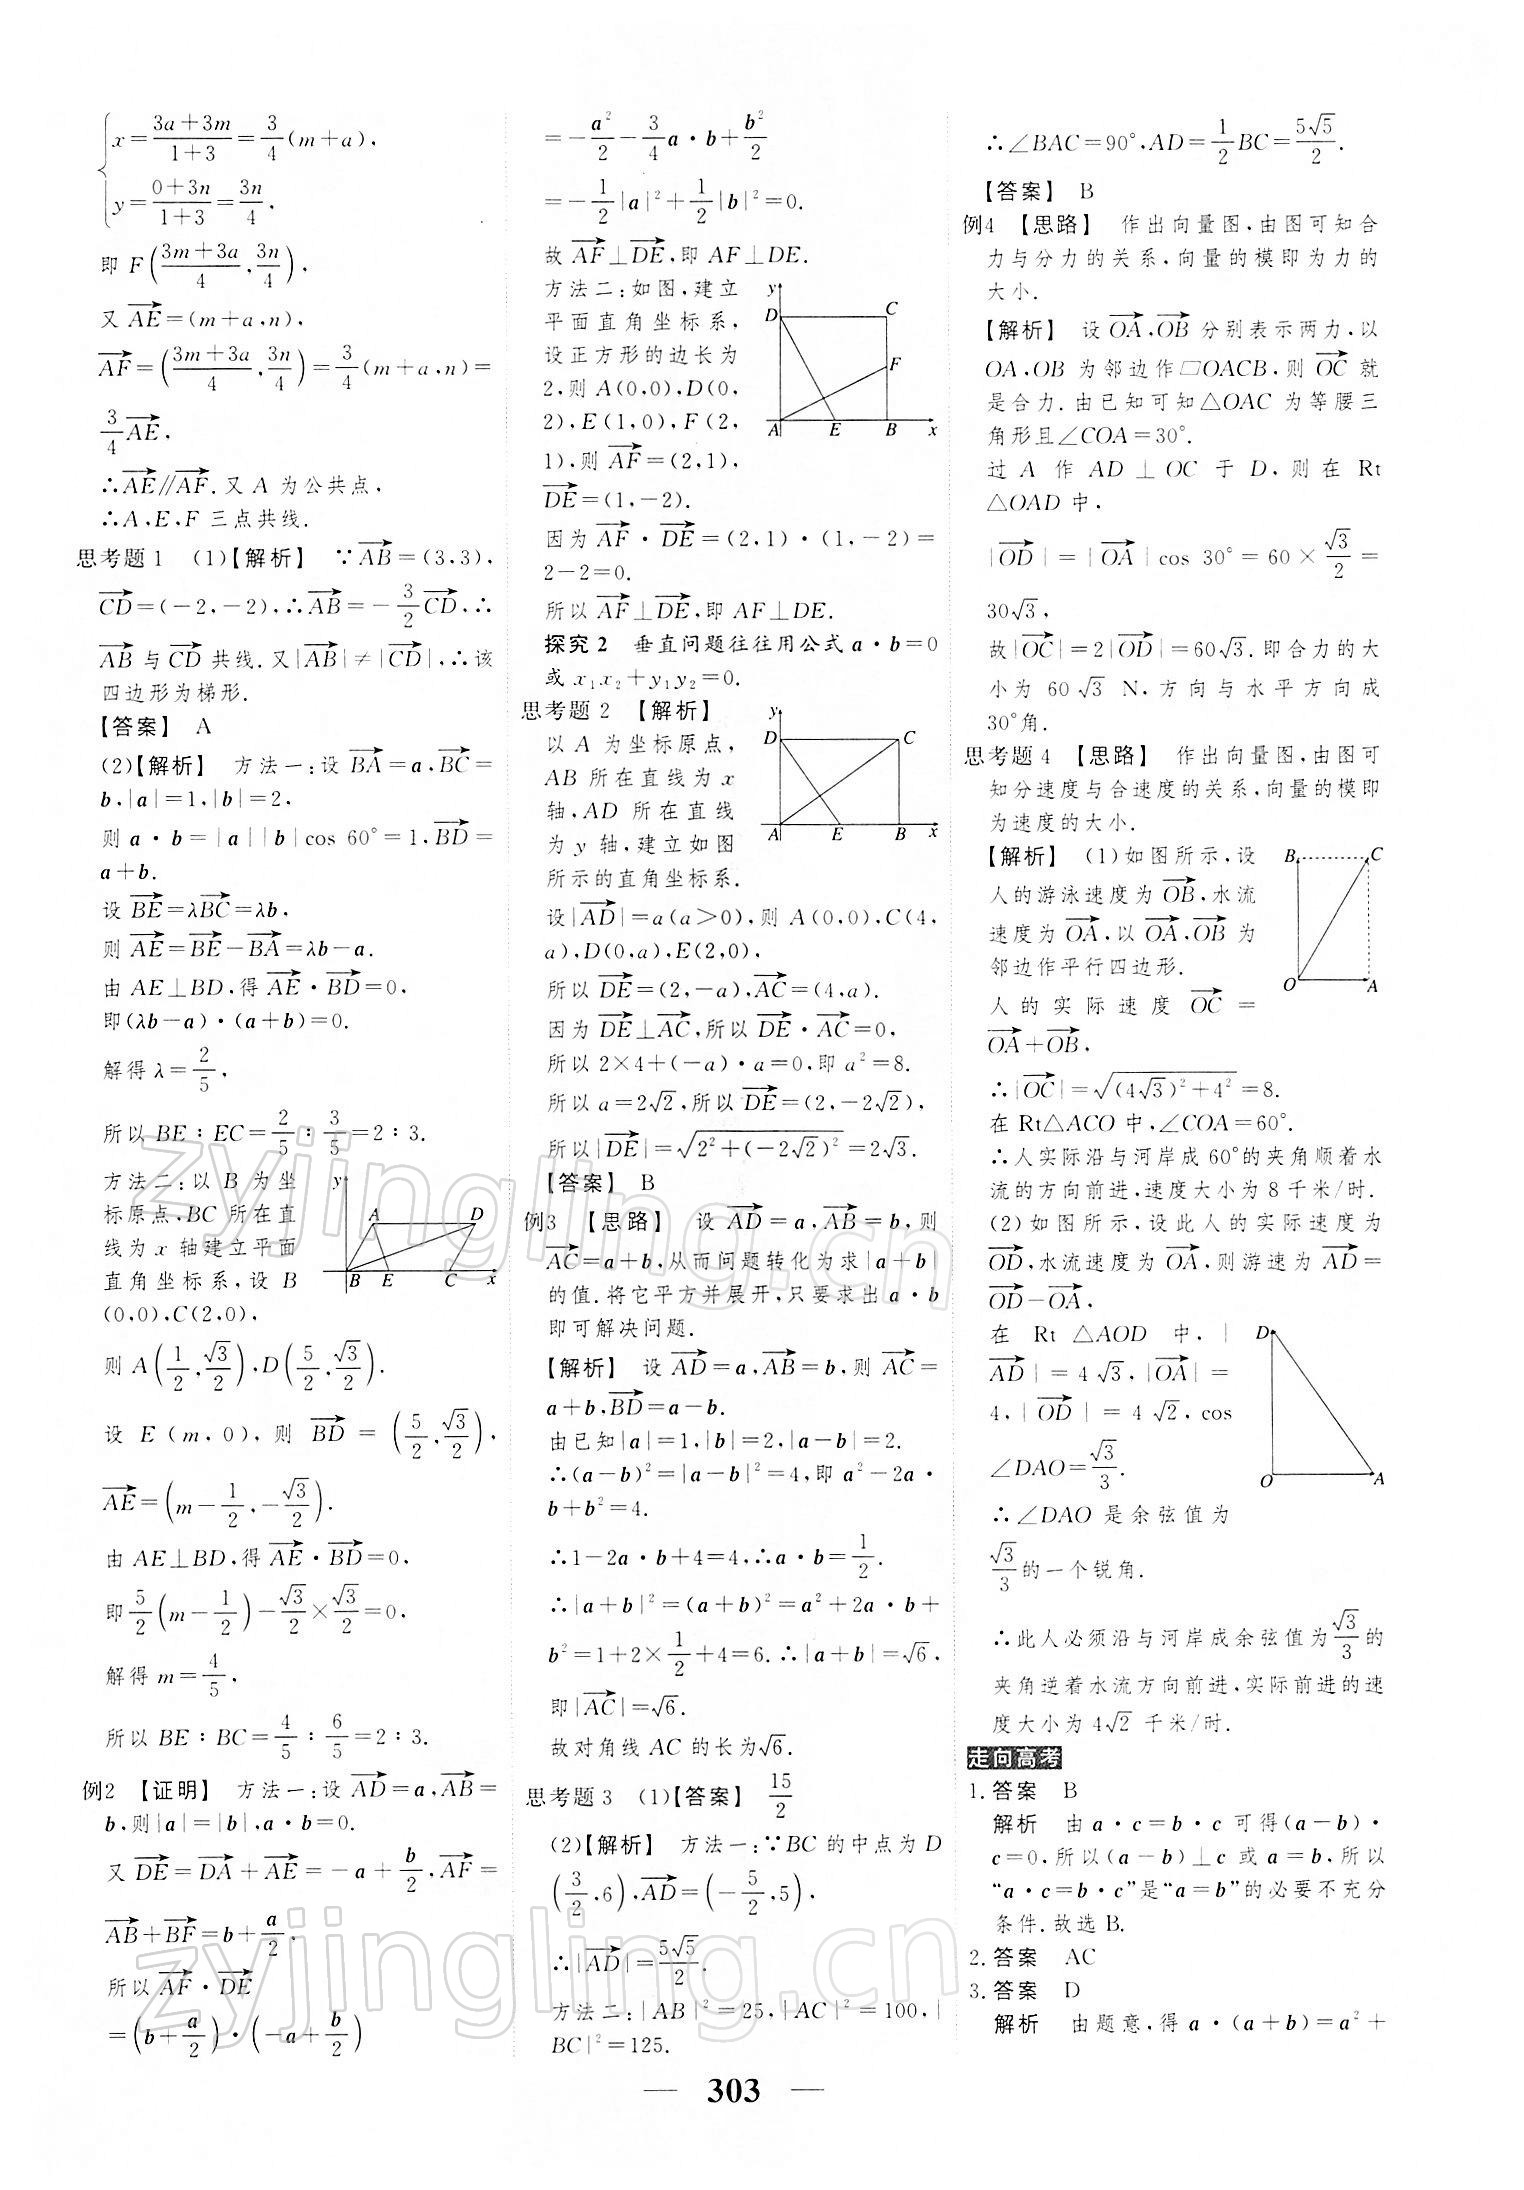 {x=(3a+3m)/(1+3)=3/4(m+a),
y=(0+3n)/(1+3)=3n/4,
即 F((3m+3a)/4,3n/4),
又 AE→=(m+a,n),
AF→=((3m+3a)/4,3n/4)=3/4(m+a,n)=
3/4AE→,
∴AE→∥AF→.又 A 为公共点,
∴A,E,F 三点共线.
思考题1 (1)【解析】 ∵AB→=(3,3),
CD→=(-2,-2),∴AB→=-3/2CD→,∴
AB→ 与 CD→ 共线.又|AB→|≠|CD→|,∴该
四边形为梯形.
【答案】 A
(2)【解析】 方法一:设 BA→=a,BC→=
b,|a|=1,|b|=2,
则 a·b=|a||b|cos 60°=1,BD→=
a+b.
设 BE→=λBC→=λb,
则 AE→=BE→-BA→=λb-a.
由 AE⊥BD,得 AE→·BD→=0,
即(λb-a)·(a+b)=0.
解得 λ=2/5,
所以 BE∶EC=2/5∶3/5=2∶3.
方法二:以 B 为坐
标原点,BC 所在直
线为 x 轴建立平面
直角坐标系,设 B
(0,0),C(2,0),
y A D B E C x
则 A(1/2,√3/2),D(5/2,√3/2).
设 E(m,0),则 BD→=(5/2,√3/2),
AE→=(m-1/2,-√3/2).
由 AE⊥BD,得 AE→·BD→=0,
即5/2(m-1/2)-√3/2×√3/2=0,
解得 m=4/5,
所以 BE∶BC=4/5∶6/5=2∶3.
例2 【证明】 方法一:设 AD→=a,AB→=
b,则|a|=|b|,a·b=0.
又 DE→=DA→+AE→=-a+b/2,AF→=
AB→+BF→=b+a/2,
所以 AF→·DE→
=(b+a/2)·(-a+b/2)
=-a²/2-3/4a·b+b²/2
=-1/2|a|²+1/2|b|²=0.
故 AF→⊥DE→,即 AF⊥DE.
方法二:如图,建立
平面直角坐标系,
设正方形的边长为
2,则 A(0,0),D(0,
2),E(1,0),F(2,
1),则 AF→=(2,1),
y D C F A E B x
DE→=(1,-2).
因为 AF→·DE→=(2,1)·(1,-2)=
2-2=0.
所以 AF→⊥DE→,即 AF⊥DE.
探究2 垂直问题往往用公式 a·b=0
或 x₁x₂+y₁y₂=0.
思考题2 【解析】
以 A 为坐标原点,
AB 所在直线为 x
轴,AD 所在直线
为 y 轴,建立如图
所示的直角坐标系.
y D C A E B x
设|AD→|=a(a>0),则 A(0,0),C(4,
a),D(0,a),E(2,0),
所以 DE→=(2,-a),AC→=(4,a).
因为 DE→⊥AC→,所以 DE→·AC→=0,
所以 2×4+(-a)·a=0,即 a²=8.
所以 a=2√2,所以 DE→=(2,-2√2),
所以|DE→|=√(2²+(-2√2)²)=2√3.
【答案】 B
例3 【思路】 设 AD→=a,AB→=b,则
AC→=a+b,从而问题转化为求|a+b|
的值.将它平方并展开,只要求出 a·b
即可解决问题.
【解析】 设 AD→=a,AB→=b,则 AC→=
a+b,BD→=a-b.
由已知|a|=1,|b|=2,|a-b|=2.
∴(a-b)²=|a-b|²=4,即 a²-2a·
b+b²=4.
∴1-2a·b+4=4,∴a·b=1/2.
∴|a+b|²=(a+b)²=a²+2a·b+
b²=1+2×1/2+4=6.∴|a+b|=√6,
即|AC→|=√6.
故对角线 AC 的长为√6.
思考题3 (1)【答案】 15/2
(2)【解析】 方法一:∵BC 的中点为 D
(3/2,6),AD→=(-5/2,5),
∴|AD→|=5√5/2.
方法二:|AB|²=25,|AC|²=100,|
BC|²=125.
∴∠BAC=90°,AD=1/2BC=5√5/2.
【答案】 B
例4 【思路】 作出向量图,由图可知合
力与分力的关系,向量的模即为力的
大小.
【解析】 设 OA→,OB→ 分别表示两力,以
OA,OB 为邻边作▱OACB,则 OC→ 就
是合力.由已知可知△OAC 为等腰三
角形且∠COA=30°.
过 A 作 AD⊥OC 于 D,则在 Rt
△OAD 中,
|OD→|=|OA→|cos 30°=60×√3/2=
30√3,
故|OC→|=2|OD→|=60√3.即合力的大
小为 60√3 N,方向与水平方向成
30°角.
思考题4 【思路】 作出向量图,由图可
知分速度与合速度的关系,向量的模即
为速度的大小.
【解析】 (1)如图所示,设
人的游泳速度为 OB→,水流
速度为 OA→,以 OA→,OB→ 为
邻边作平行四边形.
人的实际速度 OC→=
OA→+OB→,
B C O A
∴|OC→|=√((4√3)²+4²)=8.
在 Rt△ACO 中,∠COA=60°.
∴人实际沿与河岸成 60°的夹角顺着水
流的方向前进,速度大小为 8 千米/时.
(2)如图所示,设此人的实际速度为
OD→,水流速度为 OA→,则游速为 AD→=
OD→-OA→,
在 Rt△AOD 中,|
AD→|=4√3,|OA→|=
4,|OD→|=4√2,cos
∠DAO=√3/3.
D O A
∴∠DAO 是余弦值为
√3/3的一个锐角.
∴此人必须沿与河岸成余弦值为√3/3的
夹角逆着水流方向前进,实际前进的速
度大小为 4√2 千米/时.
走向高考
1.答案 B
解析 由 a·c=b·c 可得(a-b)·
c=0,所以(a-b)⊥c 或 a=b,所以
“a·c=b·c”是“a=b”的必要不充分
条件.故选 B.
2.答案 AC
3.答案 D
解析 由题意,得 a·(a+b)=a²+
— 303 —
zyjingling.cn
zyjingling.cn